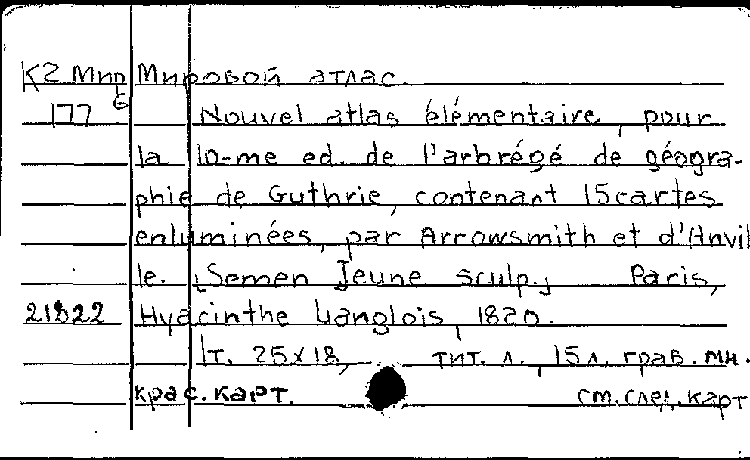 К2 Мир Мировой атлас.
177 б Nouvel atlas élémentaire, pour
la 10-me ed. de l'arbrégé de géogra-
phie de Guthrie, contenant 15 cartes
enluminées, par Arrowsmith et d'Anvil
le. [Semen Jeune sculp.] Paris,
21822 Hyacinthe Langlois, 1820.
1т. 25x18, тит. л., 15 л. грав. мн.
крас. карт. см. след. карт